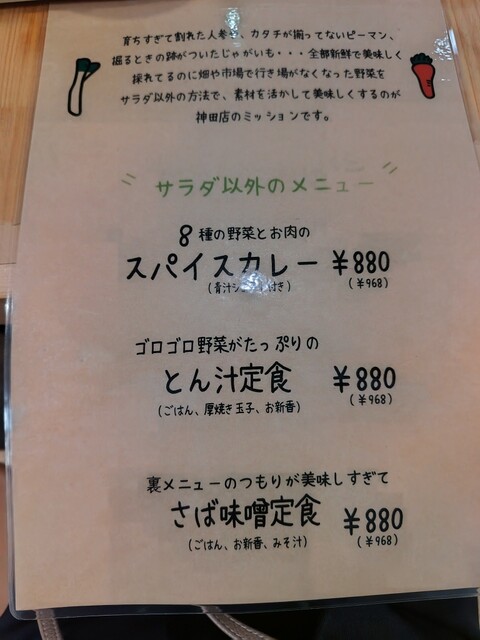 育ちすぎて割れた人参や、カタチが揃ってないピーマン、
掘るときの跡がついたじゃがいも・・・全部新鮮で美味しく
採れてるのに畑や市場で行き場がなくなった野菜を
サラダ以外の方法で、素材を活かして美味しくするのが
神田店のミッションです。
サラダ以外のメニュー
8種の野菜とお肉の
スパイスカレー ¥880
(青汁ジ 付き) (¥968)
ゴロゴロ野菜がたっぷりの
とん汁定食 ¥880
(ごはん、厚焼き玉子、お新香) (¥968)
裏メニューのつもりが美味しすぎて
さば味噌定食 ¥880
(ごはん、お新香、みそ汁) (¥968)